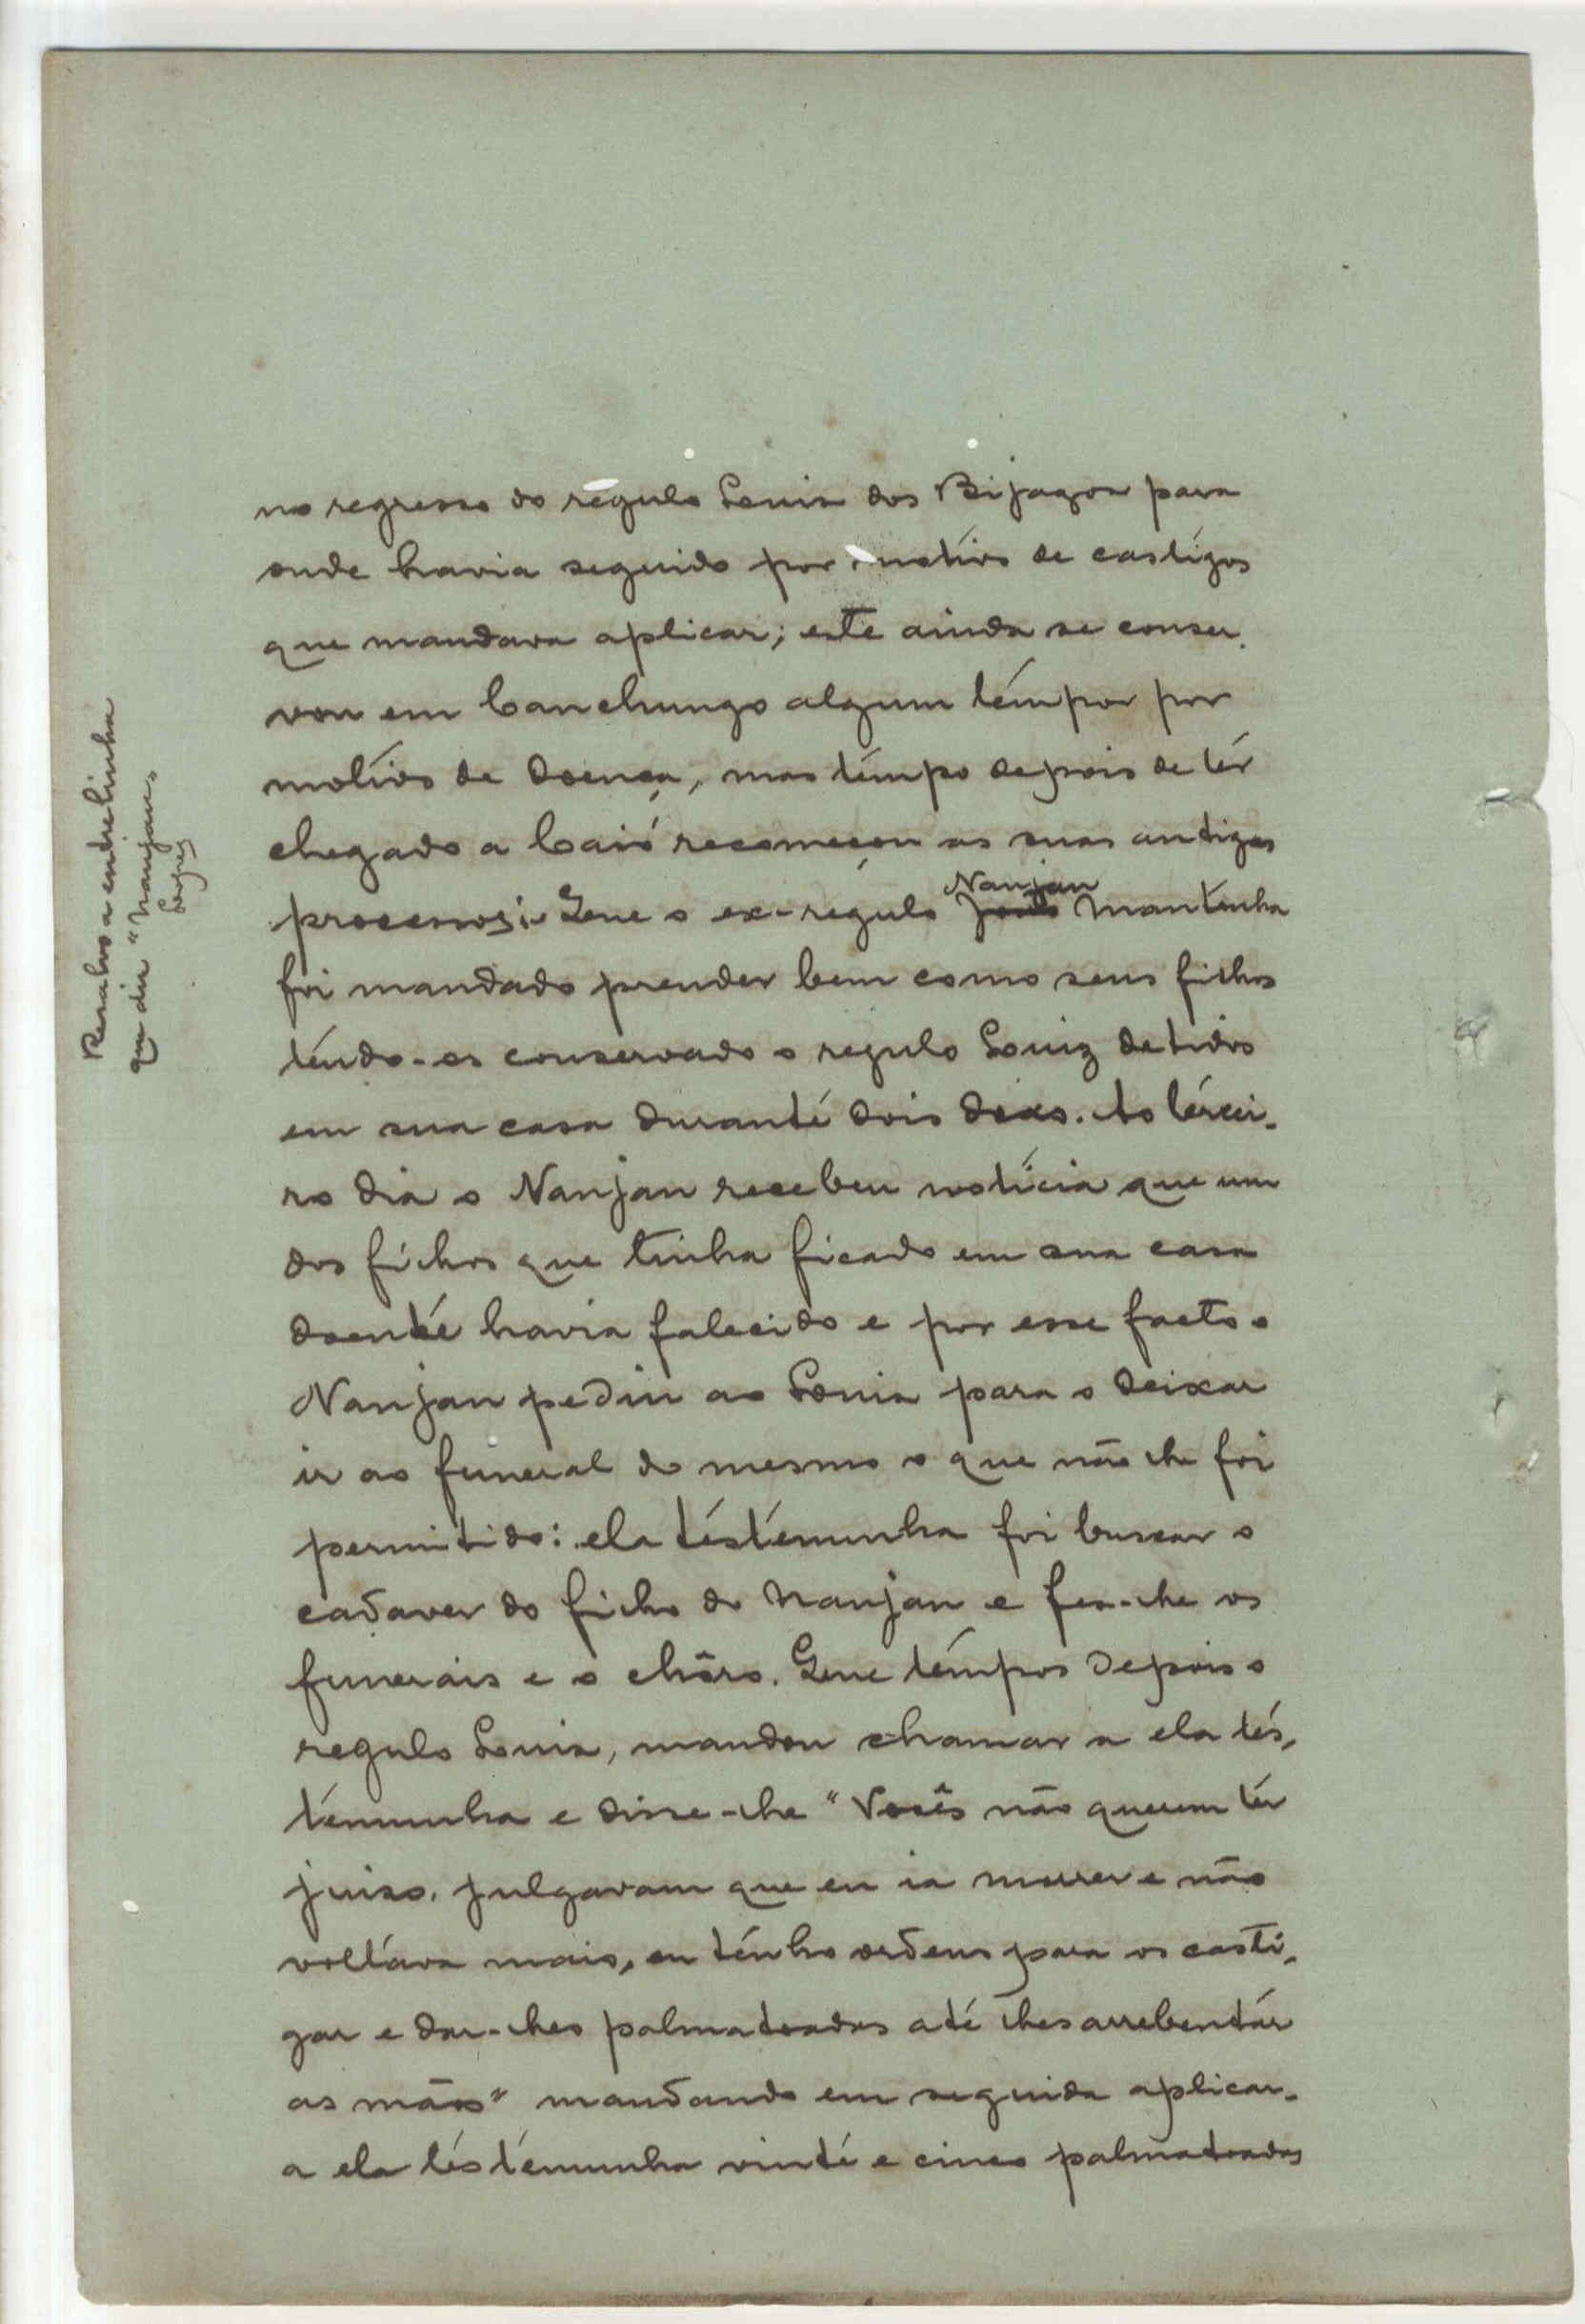 no regresso do régulo Louis dos Bijagos para
onde havia seguido por motivo de castigos
que mandava aplicar; este ainda se conser-
vou em Canchungo algum tempor por
motivo de doença, mas tempo depois de ter
chegado a Caió recomeçou as suas antigas
processos; Que o ex-régulo Nanjan Mantinha
foi mandado prender bem como seus filhos
tendo-os conservado o regulo Louiz detidos
em sua casa durante dois dias. Ao tercei-
ro dia o Nanjan recebeu noticia que um
dos filhos que tinha ficado em sua casa
doente havia falecido e por esse facto o
Nanjan pediu ao Louis para o deixar
ir ao funeral do mesmo o que não lhe foi
permitido: ela testemunha foi buscar o
cadaver do filho do Nanjan e fes-lhe os
funerais e o chôro. Que tempos depois o
regulo Louis, mandou chamar a ela tes-
temunha e disse-lhe "Vocês não querem ter
juiso, julgavam que eu ia morrer e não
voltava mais, eu tenho ordens para os casti-
gar e dar-lhes palmatoadas até lhes arrebentar
as mãos" mandando em seguida aplicar-
a ela testemunha vinte e cinco palmatoadas
Resalvo a entrelinha
que diz "Nanjan"